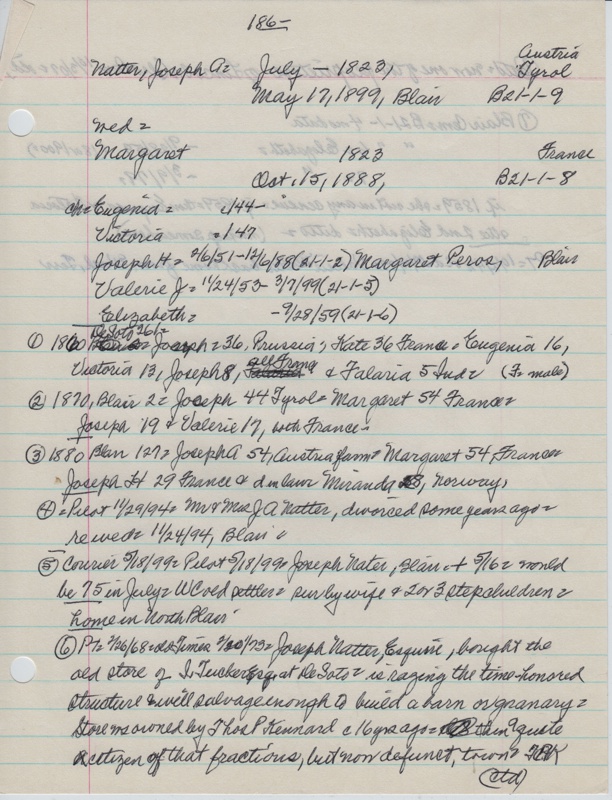 186-
Natter, Joseph A= July - 1823, Austria Tyrol
May 17, 1899, Blair B21-1-9
wed =
Margaret 1823 France
Oct. 15, 1888, B21-1-8
ch= Eugenia = c144-
Victoria = 147
Joseph H = 2/6/51-12/6/88 (21-1-2) Margaret Peros, Blair
Valerie J = 11/24/53- 3/7/99 (21-1-5)
Elizabeth = - 9/28/59 (21-1-6)
① 1860 DeSoto 261 = Joseph = 36, Prussia; Kate 36 France = Eugenia 16,
Victoria 13, Joseph 8, all France & Falaria 5 Ind = (F male)
② 1870, Blair 2 = Joseph 44 Tyrol = Margaret 54 France =
Joseph 19 & Valerie 17, both France =
③ 1880 Blair 127 = Joseph A 54, Austria farm = Margaret 54, France =
Joseph H 29 France & d in law Miranda, Norway,
④ = Pilot 11/29/94 = Mr & Mrs J A Natter, divorced some years ago =
rewed = 11/24/94, Blair =
⑤ Courier 5/18/99 = Pilot 5/18/99 = Joseph Nater, Blair + 5/16 = would
be 75 in July = WC old settler = sur by wife & 2 or 3 stepchildren =
home in North Blair
⑥ Joseph Natter, Esquire, bought the
old store of Tucker Esq. at DeSoto = is razing the time-honored
structure & will salvage enough to build a barn or granary =
Store was owned by Thos P Kennard c 16 yrs ago = then quote
a citizen of that fractious, but now defunct, town =
(ctd)